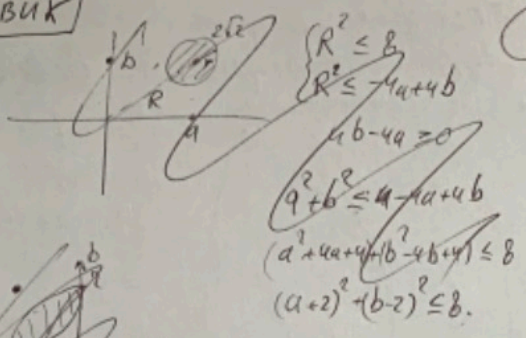 ВИК
b
2√2
r
R
a
R² ≤ 8
R² ≤ -4a+4b
4b-4a ≥ 0
a²+b² ≤ 4-4a+4b
(a²+4a+4)+(b²-4b+4) ≤ 8
(a+2)²+(b-2)² ≤ 8.
b